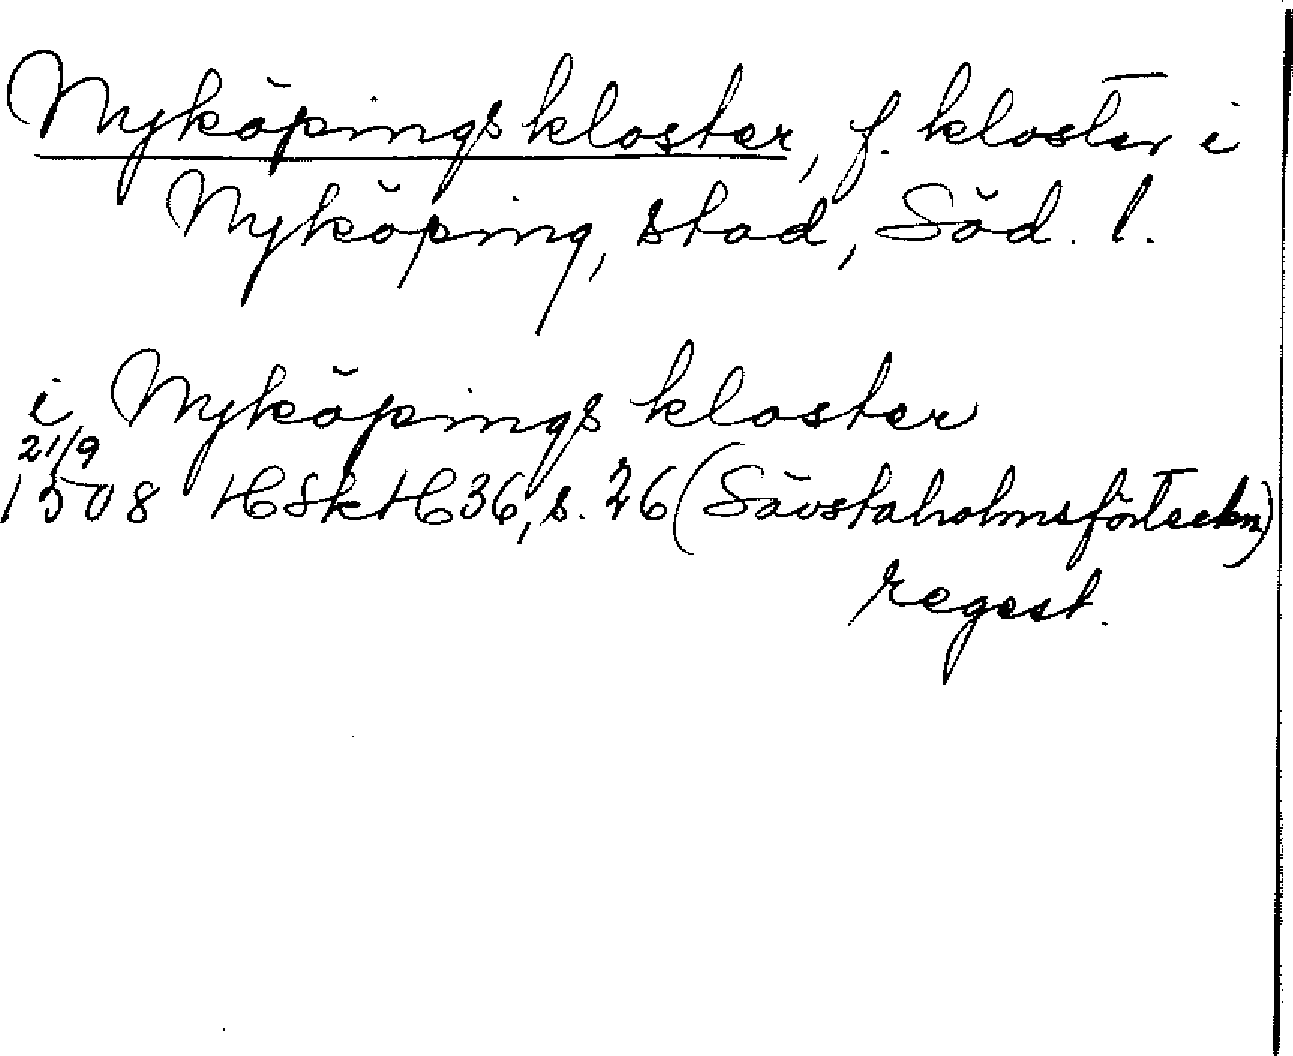 Nyköpings kloster, f. kloster i
Nyköping, stad, Söd. l.
i Nyköpings kloster
21/9
1508 HSkH 36, s. 26 (Sävstaholmsförteckn)
regest.